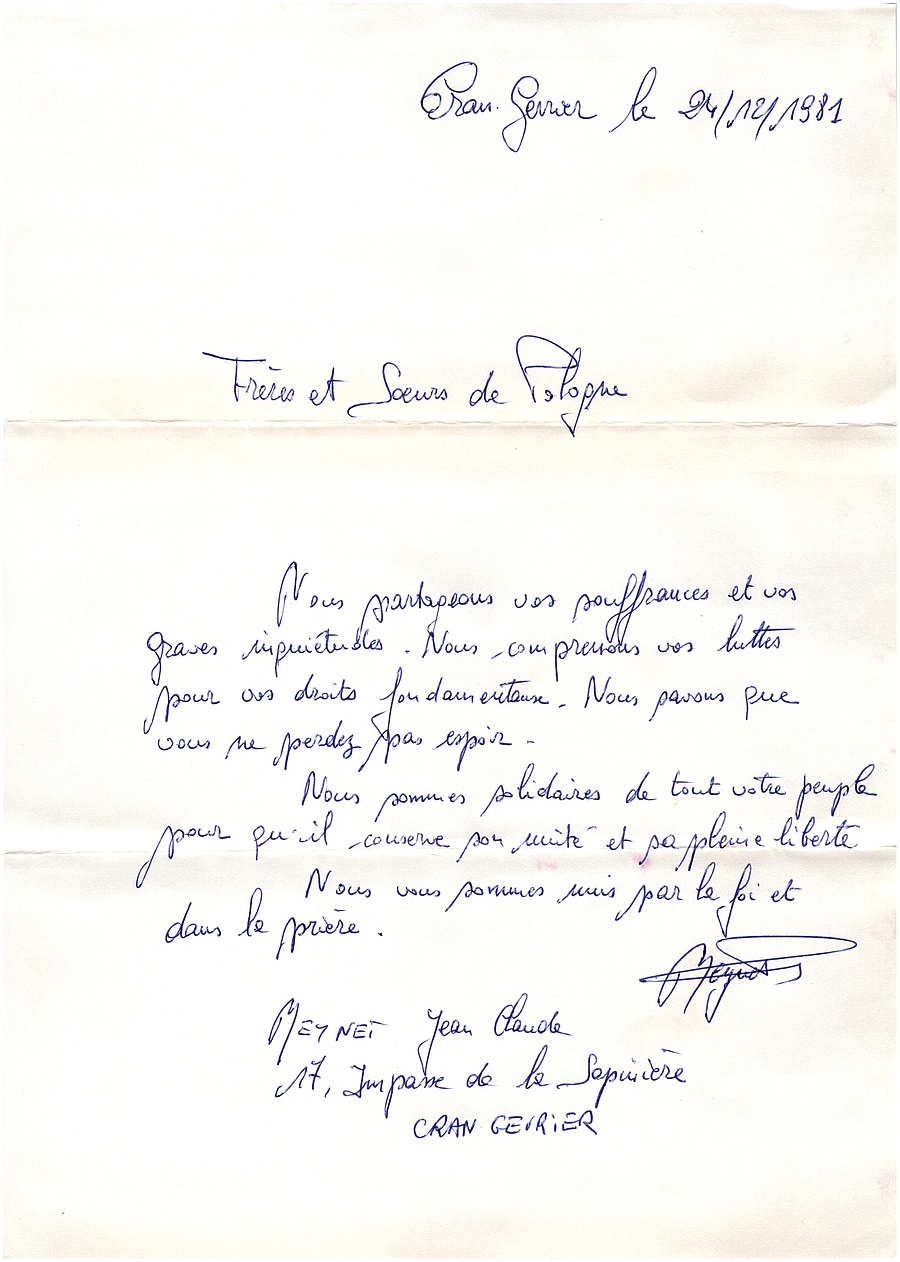 Cran-Gevrier le 24/12/1981
Frères et Soeurs de Pologne
Nous partageons vos souffrances et vos
graves inquiétudes. Nous comprenons vos luttes
pour vos droits fondamentaux. Nous savons que
vous ne perdez pas espoir.
Nous sommes solidaires de tout votre peuple
pour qu'il conserve son unité et sa pleine liberté
Nous vous sommes unis par la foi et
dans la prière.
Meynet
MEYNET Jean Claude
17, Impasse de la Sapinière
CRAN GEVRIER